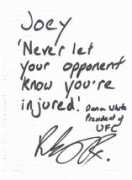 Joey
'Never let
your opponent
know you're
injured!'
Dana White
President of
UFC